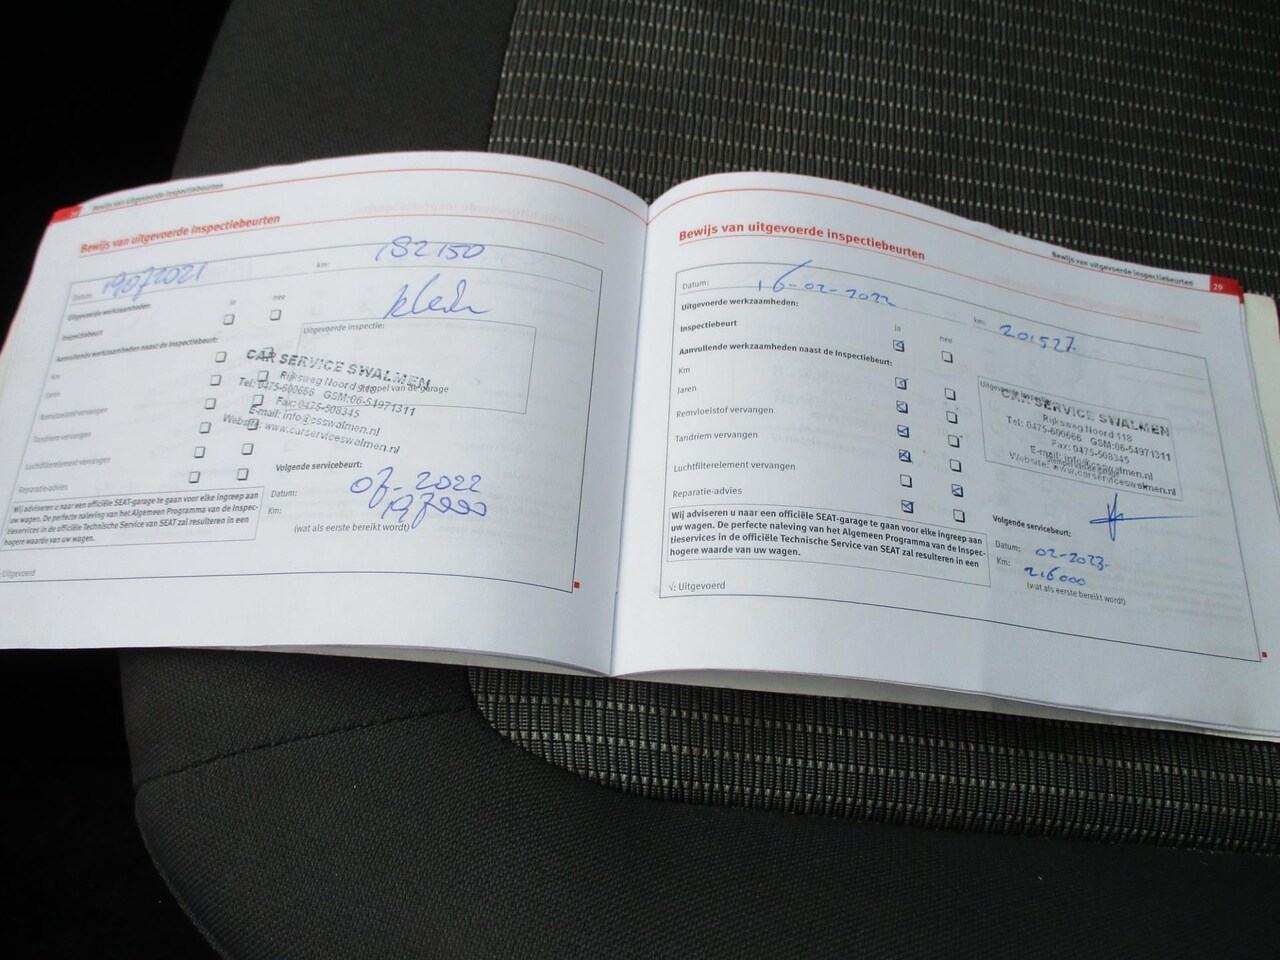 Bewijs van uitgevoerde inspectiebeurten
Bewijs van uitgevoerde inspectiebeurten
Datum: 19072021
km: 182150
Uitgevoerde werkzaamheden:
ja nee
Inspectiebeurt
Uitgevoerde inspectie:
Aanvullende werkzaamheden naast de Inspectiebeurt:
Km
Jaren
Remvloeistof vervangen
Tandriem vervangen
Luchtfilterelement vervangen
Reparatie-advies
Stempel van de garage
CAR SERVICE SWALMEN
Rijksweg Noord 118
Tel: 0475-600666 GSM:06-54971311
Fax: 0475-508345
E-mail: info@csswalmen.nl
Website: www.carserviceswalmen.nl
Volgende servicebeurt:
Datum: 07-2022
Km: 197000
(wat als eerste bereikt wordt)
Wij adviseren u naar een officiële SEAT-garage te gaan voor elke ingreep aan
uw wagen. De perfecte naleving van het Algemeen Programma van de Inspec-
tieservices in de officiële Technische Service van SEAT zal resulteren in een
hogere waarde van uw wagen.
: Uitgevoerd
Bewijs van uitgevoerde inspectiebeurten
29
Bewijs van uitgevoerde inspectiebeurten
Datum: 16-02-2022
km: 201527
Uitgevoerde werkzaamheden:
ja nee
Inspectiebeurt
Aanvullende werkzaamheden naast de Inspectiebeurt:
Km
Jaren
Remvloeistof vervangen
Tandriem vervangen
Luchtfilterelement vervangen
Reparatie-advies
CAR SERVICE SWALMEN
Rijksweg Noord 118
Tel: 0475-600666 GSM:06-54971311
Fax: 0475-508345
E-mail: info@csswalmen.nl
Website: www.carserviceswalmen.nl
Volgende servicebeurt:
Datum: 02-2023
Km: 216000
(wat als eerste bereikt wordt)
Wij adviseren u naar een officiële SEAT-garage te gaan voor elke ingreep aan
uw wagen. De perfecte naleving van het Algemeen Programma van de Inspec-
tieservices in de officiële Technische Service van SEAT zal resulteren in een
hogere waarde van uw wagen.
√: Uitgevoerd